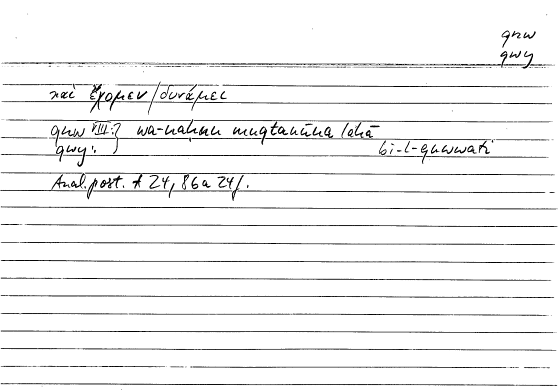 qnw
qwy
καὶ ἔχομεν/δυνάμει
qnw VIII:} wa-naḥnu muqtanūna lahā
qwy: bi-l-quwwati
Anal. post. A 24, 86a 24f.